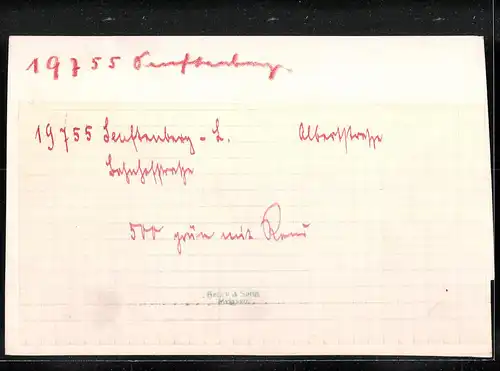 19755 Senftenberg.
19755 Senftenberg - L. Albertstraße
Bahnhofstraße
500 grün mit Rand